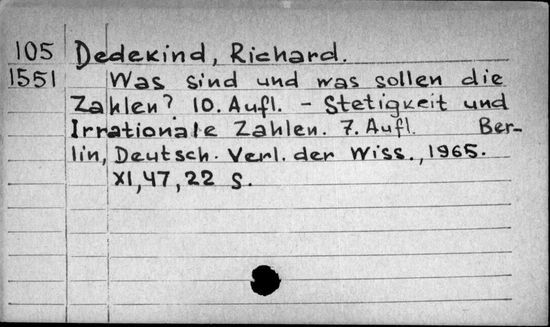 105 Dedekind, Richard.
1551 Was sind und was sollen die
Zahlen? 10. Aufl. - Stetigkeit und
Irrationale Zahlen. 7. Aufl. Ber-
lin, Deutsch. Verl. der Wiss., 1965.
XI, 47, 22 S.